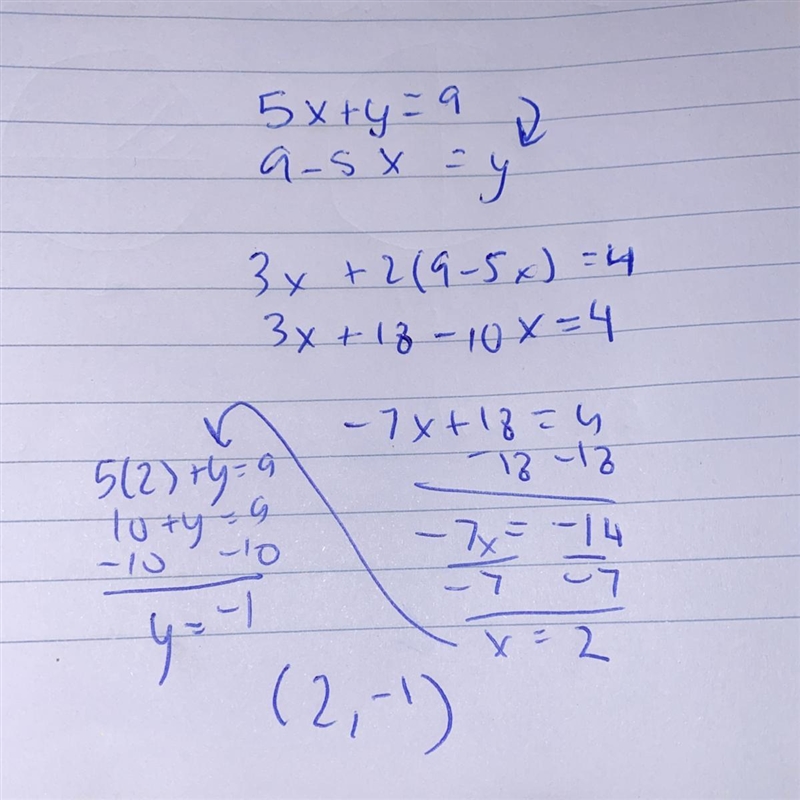 5x+y=9
9-5x =y
3x +2(9-5x)=4
3x+18-10x=4
-7x+18=4
-18 -18
-7x= -14
-7 -7
x=2
5(2)+y=9
10+y=9
-10 -10
y=-1
(2,-1)